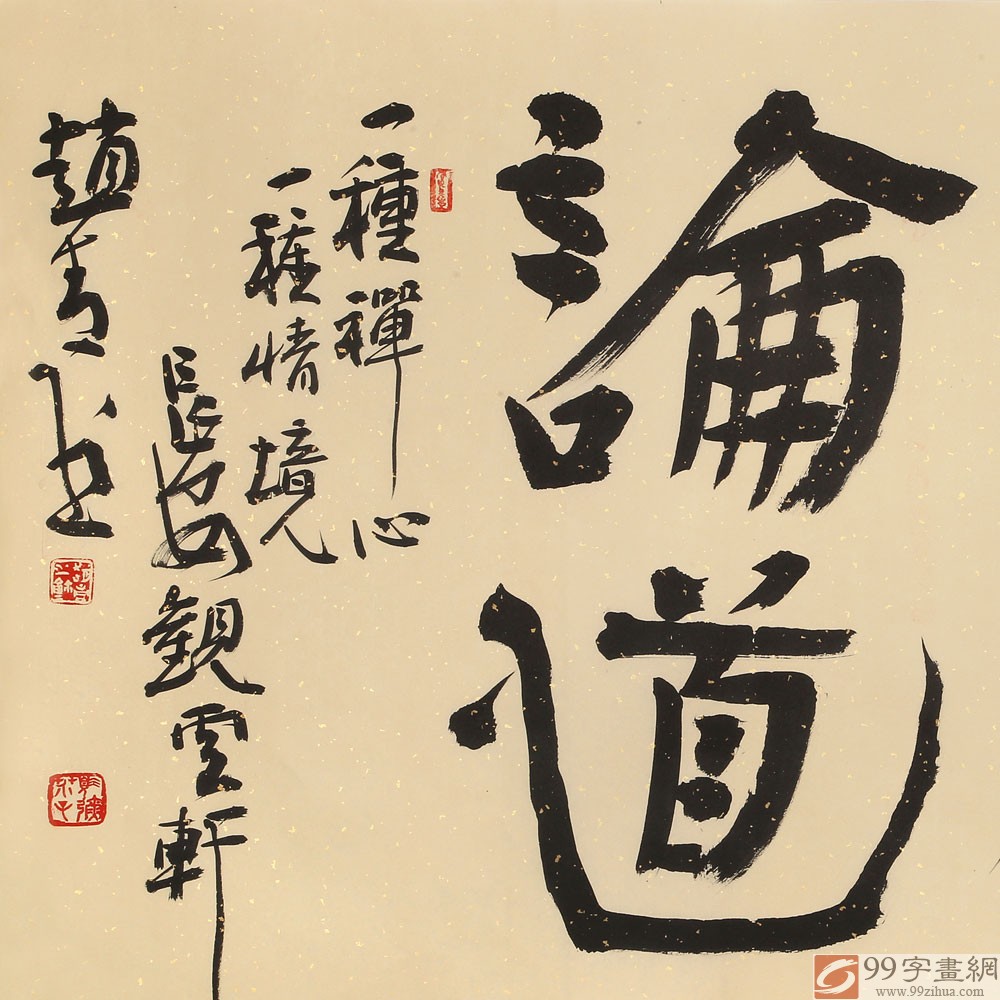 論道
一種禪心
一種情境
長安觀雲軒
趙青书
99字畫網
www.99zihua.com